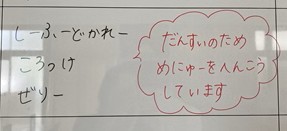 しーふーどかれー
ころっけ
ぜりー
だんすいのため
めにゅーをへんこう
しています